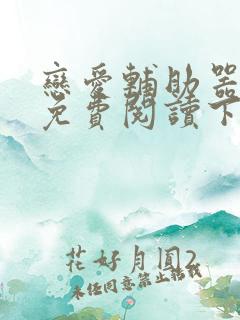 戀愛輔助器
免費閱讀下
花好月圓2
未經同意禁止轉載